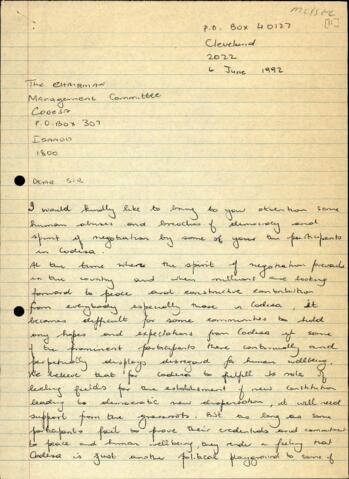 P.O. BOX 40127
Cleveland
2022
6 June 1992
The CHAIRMAN
Management Committee
CODESA
P.O. BOX 307
ISANDO
1600
DEAR SIR
I would kindly like to bring to your attention some
human abuses and breaches of democracy and
spirit of negotiation by some of your the participants
in Codesa.
At the time where the spirit of negotiation prevails
in the country and when millions are looking
forward to peace and constructive contribution
from everybody especially those in Codesa it
becomes difficult for some communities to hold
any hopes and expectations from Codesa if some
of the prominent participants there continually and
perpetually displays disregard for human wellbeing.
We believe that for Codesa to fulfill its role of
leading fields for the establishment of new constitution
leading to democratic new dispensation, it will need
support from the grassroots. But as long as some
participants fail to prove their credentials and commitment
to peace and human wellbeing, they render a feeling that
Codesa is just another political playground to some if